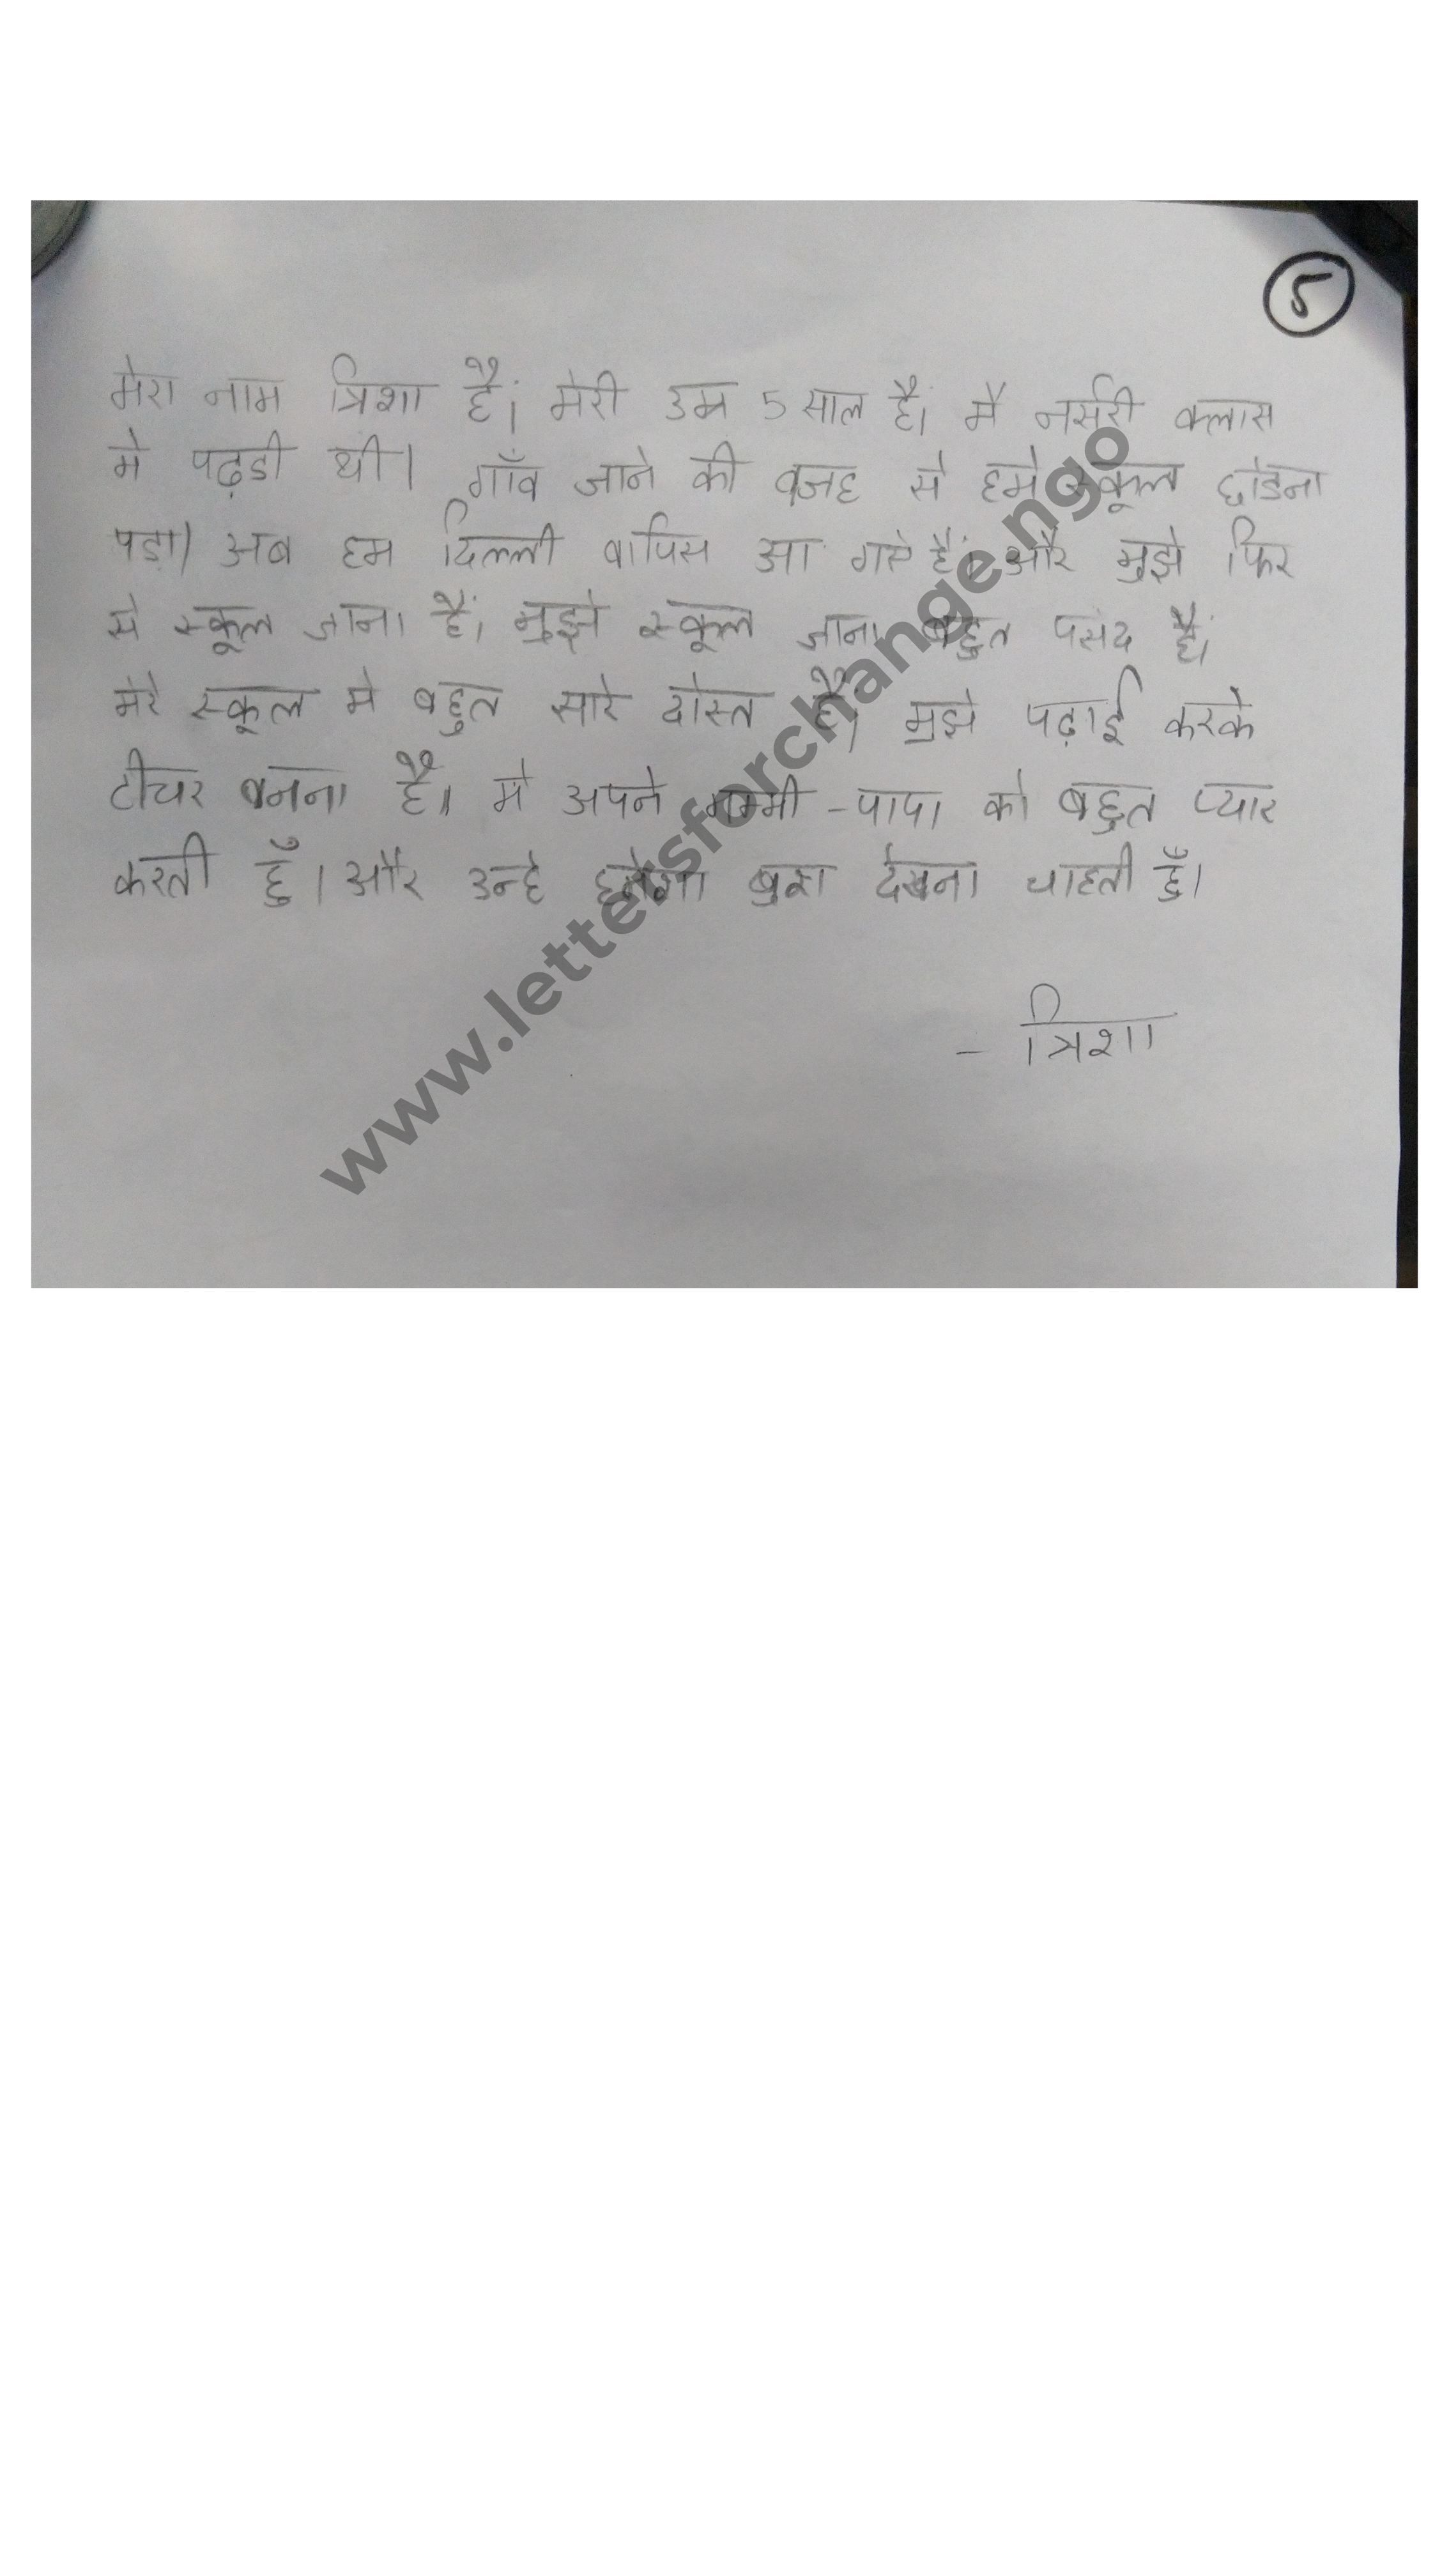 5
मेरा नाम त्रिशा हैं। मेरी उम्र 5 साल हैं। मै नर्सरी क्लास
मे पढ़डी थी। गाँव जाने की वजह से हमे स्कूल छोडना
पड़ा। अब हम दिल्ली वापिस आ गए हैं। और मुझे फिर
से स्कूल जाना हैं। मुझे स्कूल जाना बहुत पसंद हैं।
मेरे स्कूल मे बहुत सारे दोस्त हैं। मुझे पढ़ाई करके
टीचर बनना हैं। मे अपने मम्मी-पापा को बहुत प्यार
करती हुँ। और उन्हे हमेशा देखना चाहती हुँ।
- त्रिशा
www.lettersforchange.ngo